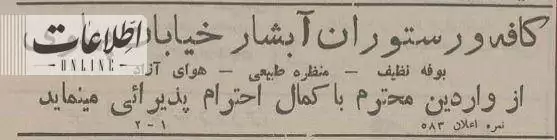 کافه و رستوران آبشار خیابان
بوفه نظیف - منظره طبیعی - هوای آزاد
از واردین محترم با کمال احترام پذیرائی مینماید
نمره اعلان ۵۸۳
۲-۱
اطلاعات
ONLINE